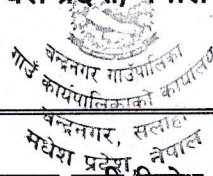 चन्द्रनगर गाउँपालिका
गाउँ कार्यपालिकाको कार्यालय
चन्द्रनगर, सलाही
मधेश प्रदेश, नेपाल